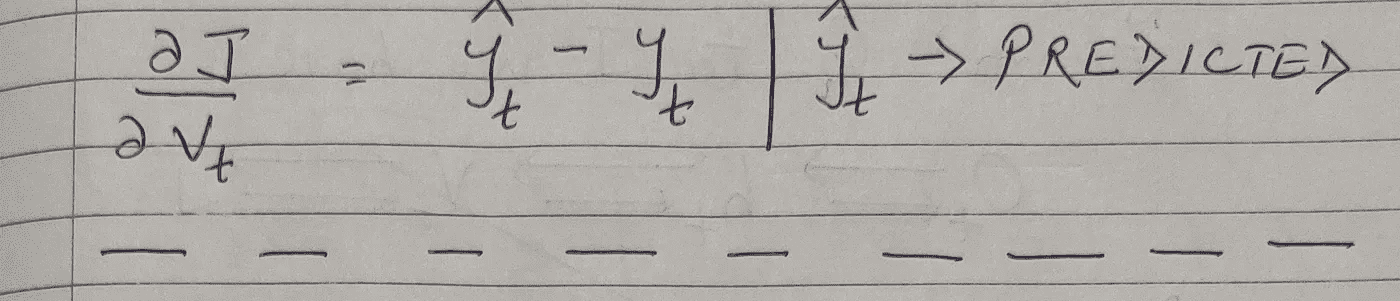 ∂J/∂V_t = ŷ_t − y_t | ŷ_t → PREDICTED